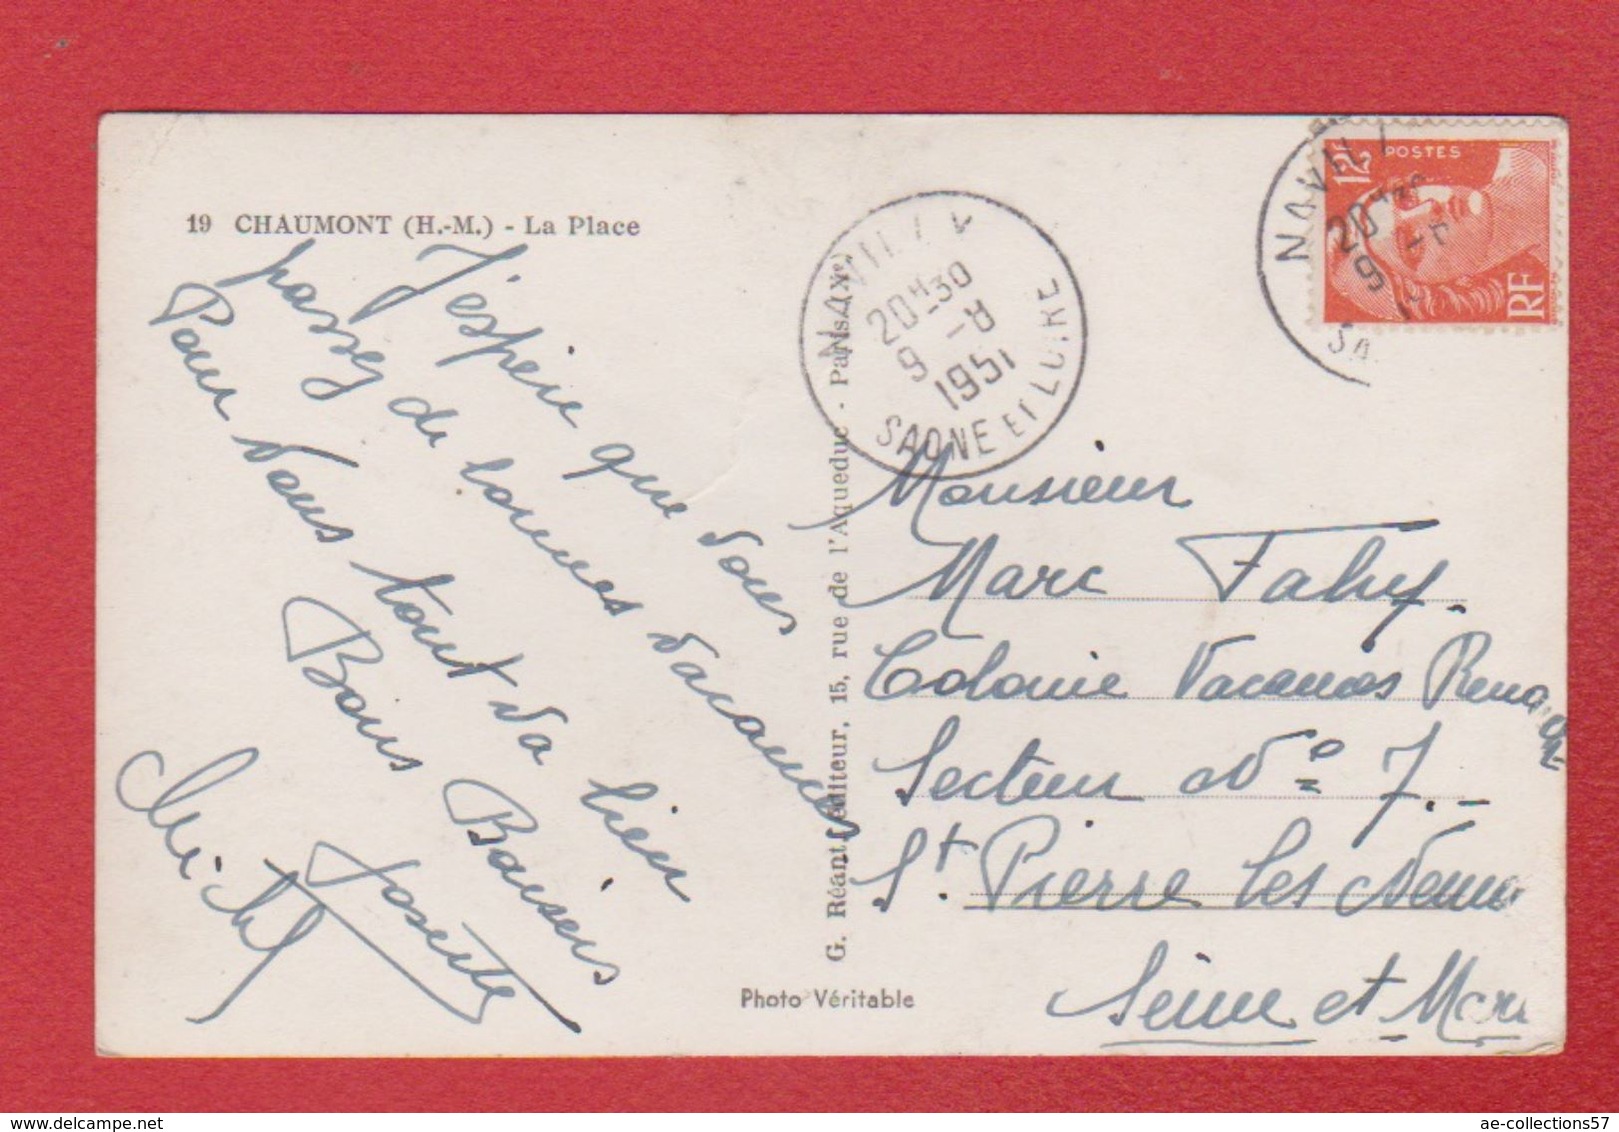 19 CHAUMONT (H.-M.) - La Place
J'espère que vous
passez de bonnes vacances
Pour vous tout va bien
Bons Baisers
Josette
Michel
G. Réant, éditeur, 15, rue de l'Aqueduc - Paris (Xe)
Photo Véritable
NAVILLY
20H30
9 -8
1951
SAONE ET LOIRE
NAVILL
20H30
9 -8
SA
POSTES
12F
RF
Monsieur
Marc Fahy.
Colonie Vacances
Secteur No 7.-
St Pierre les Nemou
Seine et Mar
ae-collections57